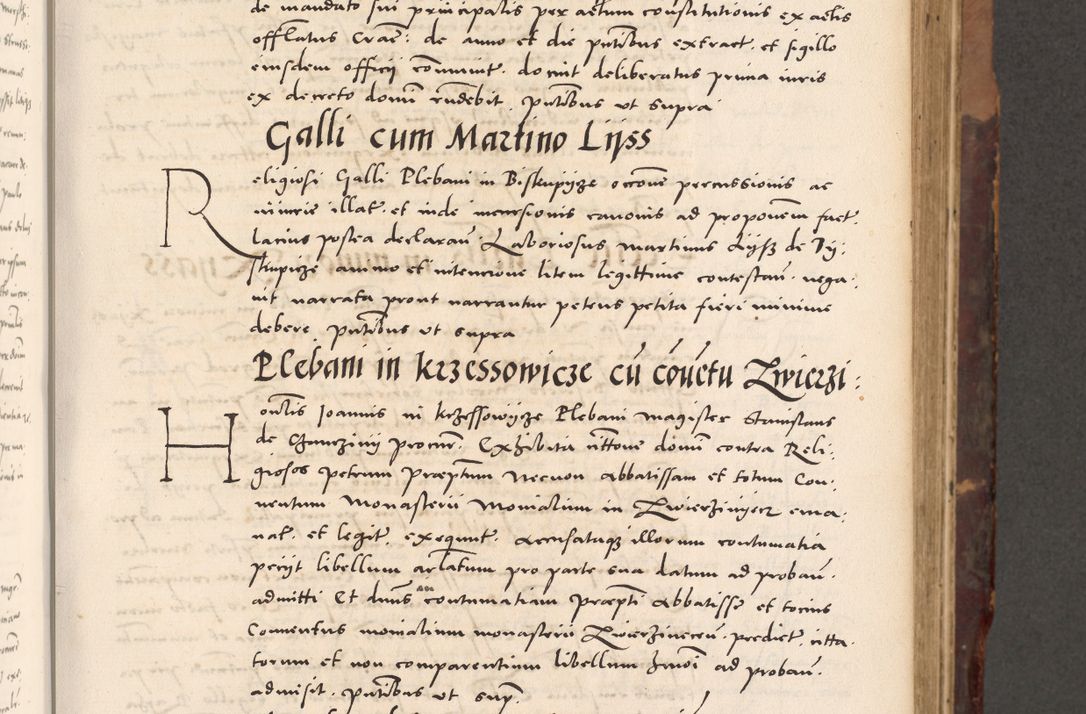 de mandato sui principalis per actum constitutionis ex actis
offlatus Crac̄: de anno et die pn̄tibus extract: et sigillo
eiusdem officij com̄unit: docuit deliberatus prima iuris
ex decreto domi rn̄debit. pn̄tibus ut supra
Galli cum Martino Lijss
Religiosi Galli Plebani in Biskupijze occōne percussionis ac
iniurie illat: et inde incursionis canonis ad proponem̄ fact:
lacius postea declaran̄: Laboriosus Martinus Lijsz de Bij:
skupize animo et intencione litem legittime contestan̄. nega:
uit narrata prout narrantur petens petita fieri minime
debere. pn̄tibus ut supra
Plebani in krzessowicze cū cōuētu Zwierzi:
Hon̄lis Joannis in krzessowijcze Plebani magister Stanislaus
de procur̄. Exhibita citt̄one domi contra Reli:
giosos petrum Præp̄tum Necnon abbatissam et totum Con:
uentum Monasterii Monialium in Zwierzinijecz ema:
nat: et legit: exequut: accusatuqз illorum contumatia
petijt libellum arl̄atum pro parte sua datum ad proban̄.
admitti Et dn̄us in contumatiam Præp̄ti abbatisse et tocius
Conuentus monialium monasterii Zwierzinecen̄: predict: citta:
torum et non comparentium libellum hmōi ad proban̄.
admisit. pn̄tibus ut sup̄.